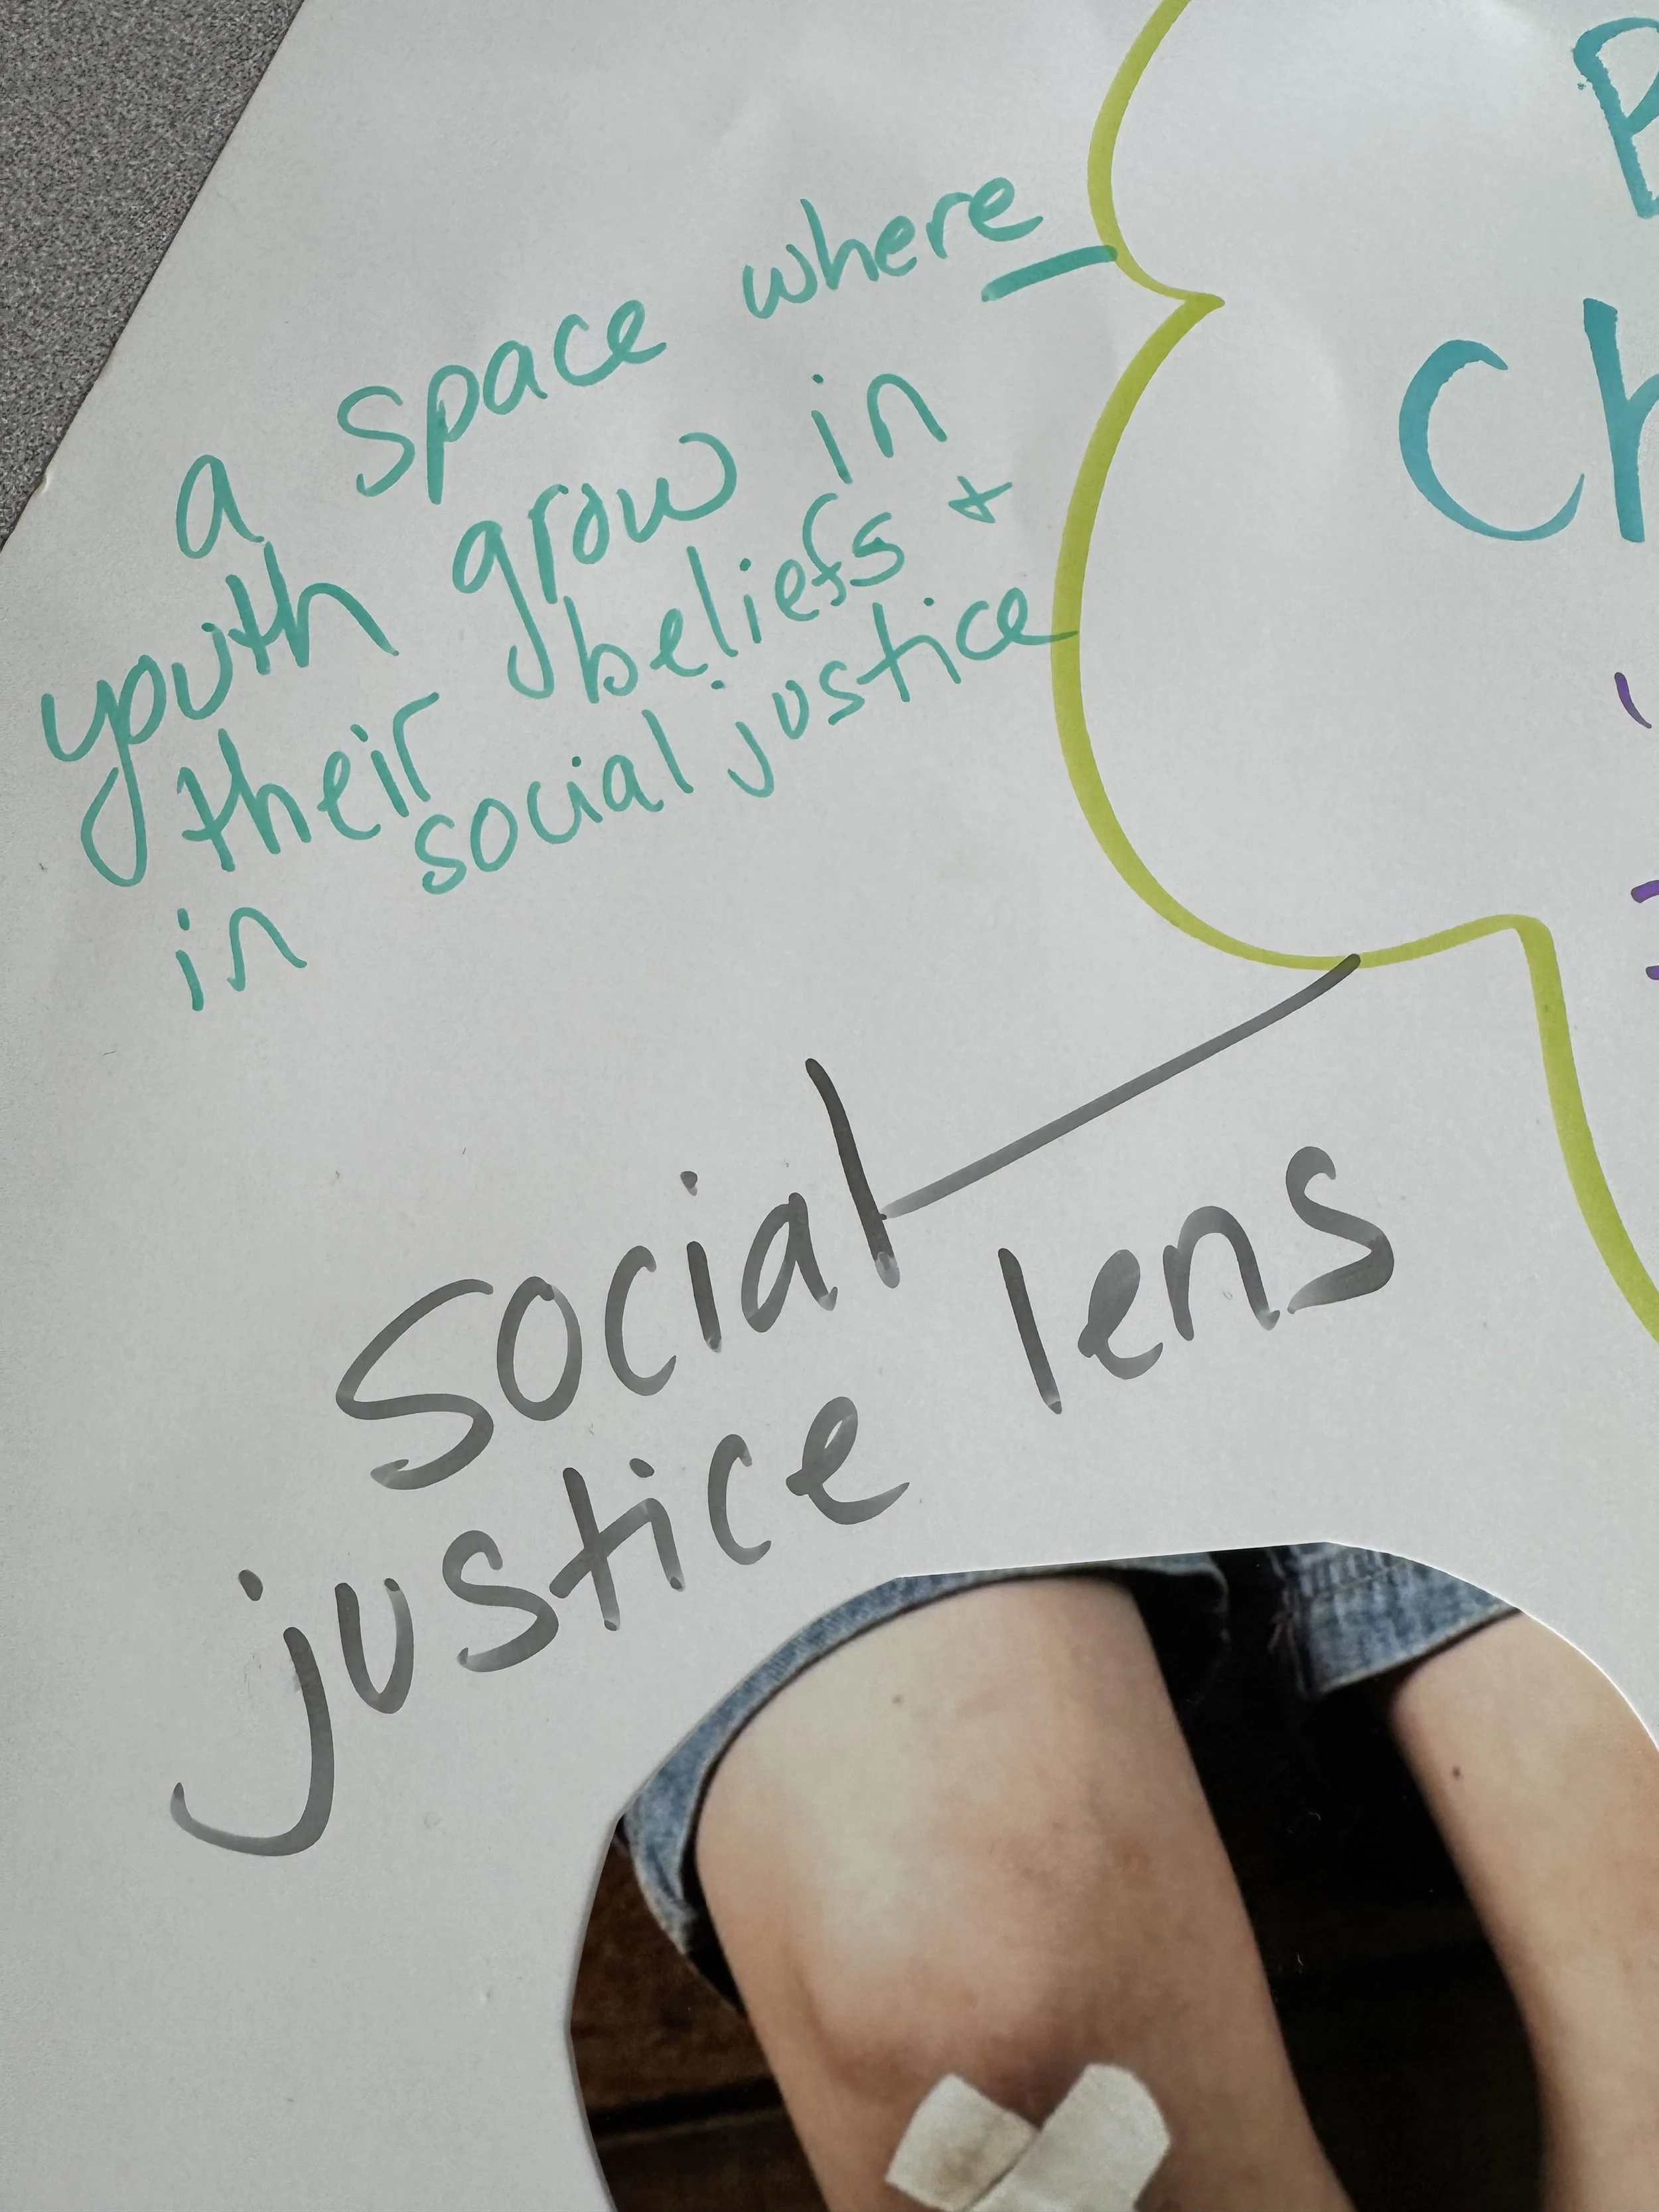 a space where
youth grow in
their beliefs +
in social justice
social
justice lens
Ch